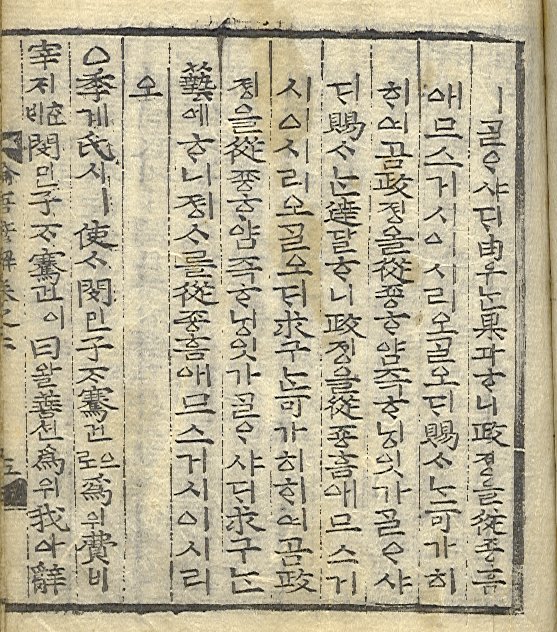 ㅣᄀᆞᆯᄋᆞ샤ᄃᆡ由유ᄂᆞᆫ果과ᄒᆞ니政졍를從죵홈
애므스거시이시리오ᄀᆞᆯ오ᄃᆡ賜ᄉᆞᄂᆞᆫ可가히
ᄒᆞ여곰政졍을從죵ᄒᆞ얌즉ᄒᆞ닝잇가ᄀᆞᆯᄋᆞ샤
ᄃᆡ賜ᄉᆞᄂᆞᆫ達달ᄒᆞ니政졍을從죵홈애므스거
시이시리오ᄀᆞᆯ오ᄃᆡ求구ᄂᆞᆫ可가히ᄒᆞ여곰政
졍을從죵ᄒᆞ얌즉ᄒᆞ닝잇가ᄀᆞᆯᄋᆞ샤ᄃᆡ求구ᄂᆞᆫ
藝예ᄒᆞ니졍ᄉᆞ를從죵홈애므스거시이시리
오
○季계氏시ㅣ使ᄉᆞ閔민子ᄌᆞ騫건으로爲위費비
宰ᄌᆡ閔민子ᄌᆞ騫건이曰왈善션爲위我아辭